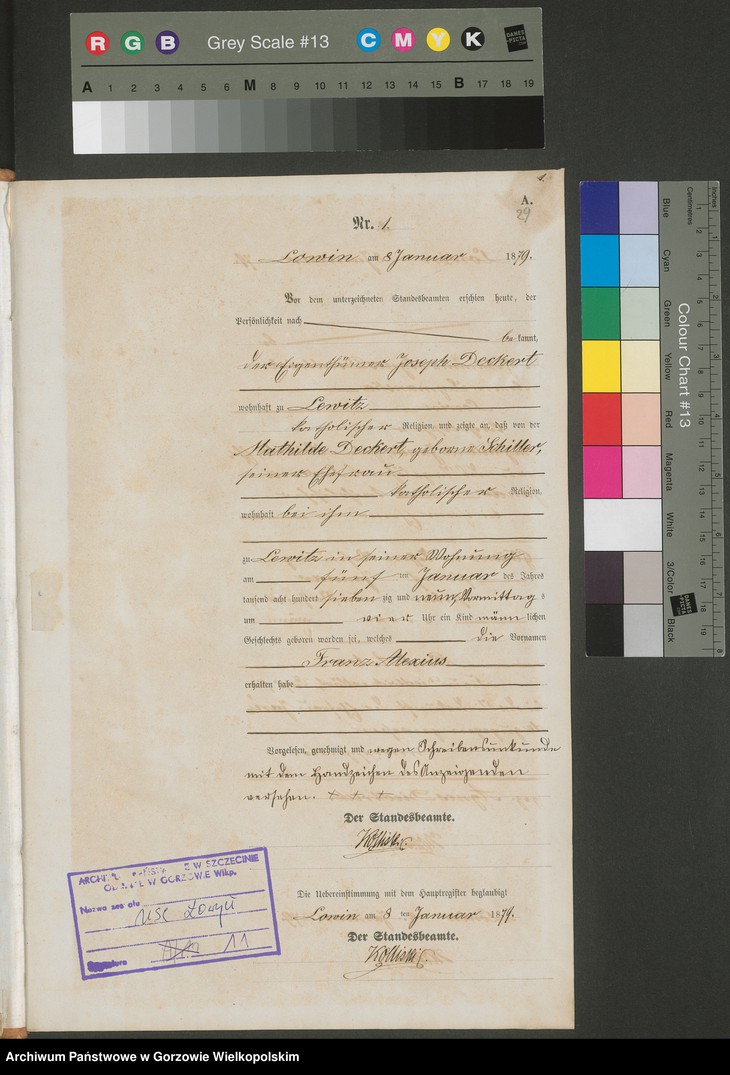 R G B Grey Scale #13 C M Y K DANES PICTA
A 1 2 3 4 5 6 M 8 9 10 11 12 13 14 15 B 17 18 19
1.
A.
29
Nr. 1.
Lowin am 8 Januar 1879.
Vor dem unterzeichneten Standesbeamten erschien heute, der
Persönlichkeit nach
be kannt,
der Eigenthümer Joseph Deckert
wohnhaft zu Lewitz
katholischer Religion, und zeigte an, daß von der
Mathilde Deckert, geborne Schiller,
seiner Ehefrau
katholischer Religion,
wohnhaft bei ihm
zu Lewitz in seiner Wohnung
am fünf ten Januar des Jahres
tausend acht hundert sieben zig und neun, Vormittag s
um vier Uhr ein Kind männ lichen
Geschlechts geboren worden sei, welches die Vornamen
Franz Alexius
erhalten habe
Vorgelesen, genehmigt und wegen Schreibensunkunde
mit dem Handzeichen des Anzeigenden
versehen. + + +
Der Standesbeamte.
Die Uebereinstimmung mit dem Hauptregister beglaubigt
Lowin am 8 ten Januar 1879.
Der Standesbeamte.
W SZCZECINIE
W GORZOWIE Wlkp.
Nazwa zespołu
USC Łowyń
11
Blue Cyan Green Yellow Red Magenta White 3/Color Black
Colour Chart #13
Centimetres
Inches
DANES PICTA
Archiwum Państwowe w Gorzowie Wielkopolskim